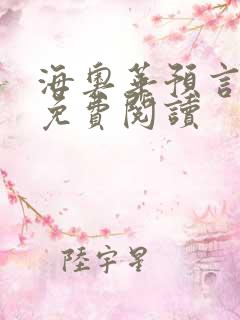 海奧華預言
免費閱讀
陸宇星